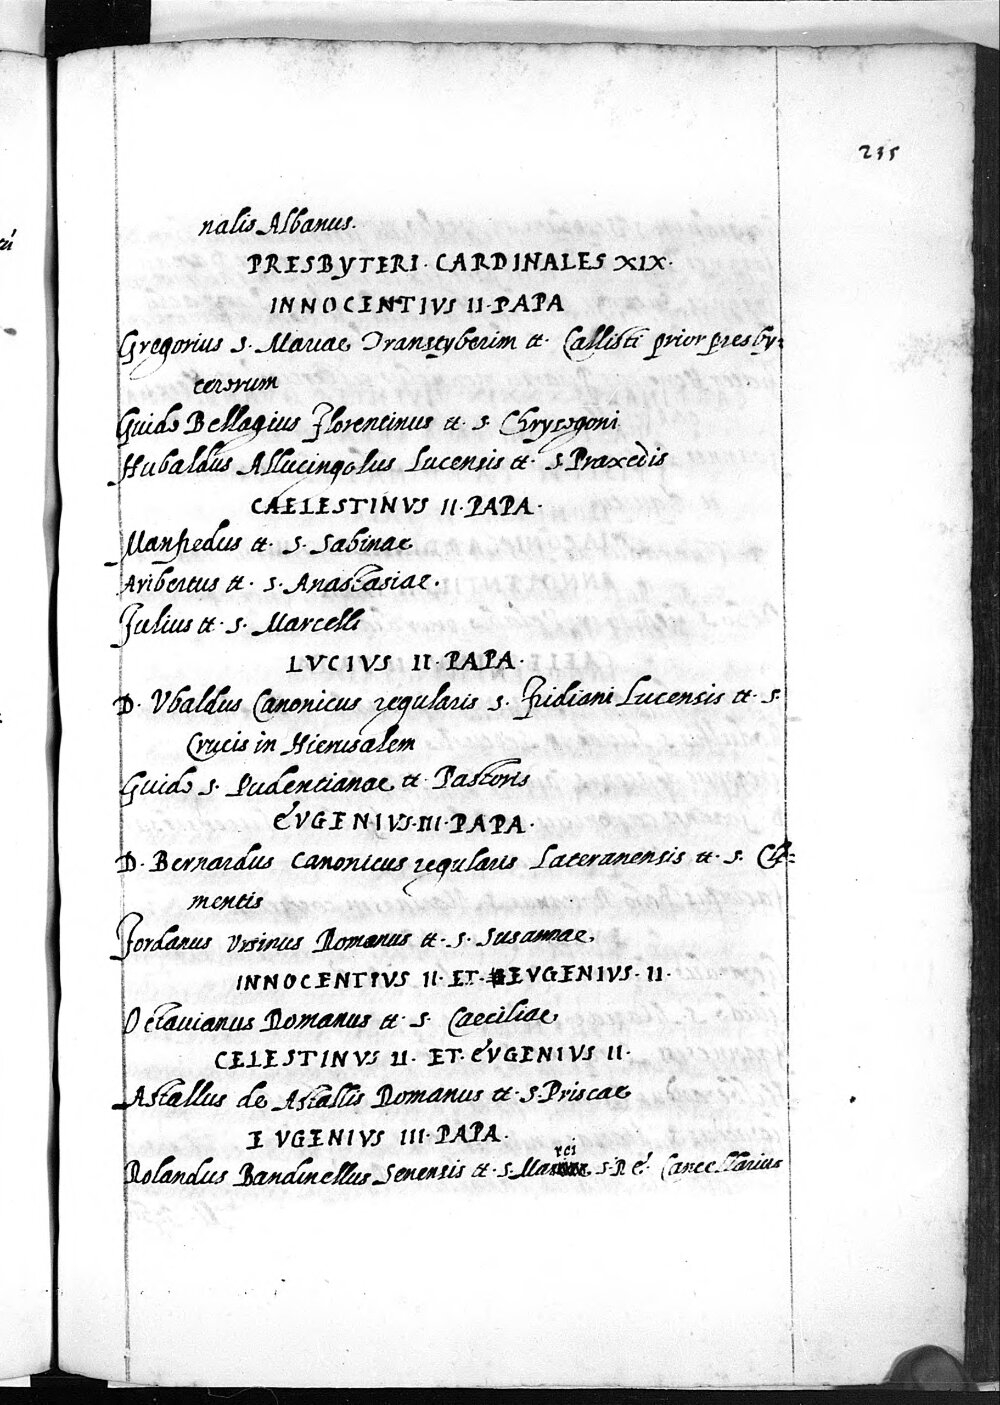 235
nalis Albanus.
PRESBYTERI. CARDINALES XIX.
INNOCENTIVS II. PAPA
Gregorius S. Mariae Transtyberim tt. Callisti prior presby=
terorum
Guido Bellagius Florentinus tt. S. Chrysogoni
Hubaldus Allucingolus Lucensis tt. S Praxedis
CAELESTINVS II. PAPA.
Manfredus tt. S. Sabinae
Aribertus tt. S. Anastasiae.
Julius tt. S. Marcelli
LVCIVS II. PAPA.
D. Vbaldus Canonicus regularis S. Fridiani Lucensis tt. S.
Crucis in Hierusalem
Guido S. Pudentianae tt. Pastoris
EVGENIVS. III. PAPA.
D. Bernardus Canonicus regularis Lateranensis tt. S. Cle=
mentis
Jordanus Vrsinus Romanus tt. S. Susannae.
INNOCENTIVS II. ET. EVGENIVS. II.
Octavianus Romanus tt. S. Caeciliae
CELESTINVS II. ET. EVGENIVS II.
Astallus de Astallis Romanus tt. S. Priscae
EVGENIVS III. PAPA.
Rolandus Bandinellus Senensis tt. S. Marci S. R. E. Cancellarius